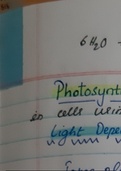 6 H₂O -
Photosynt
in cells usin
Light Depe